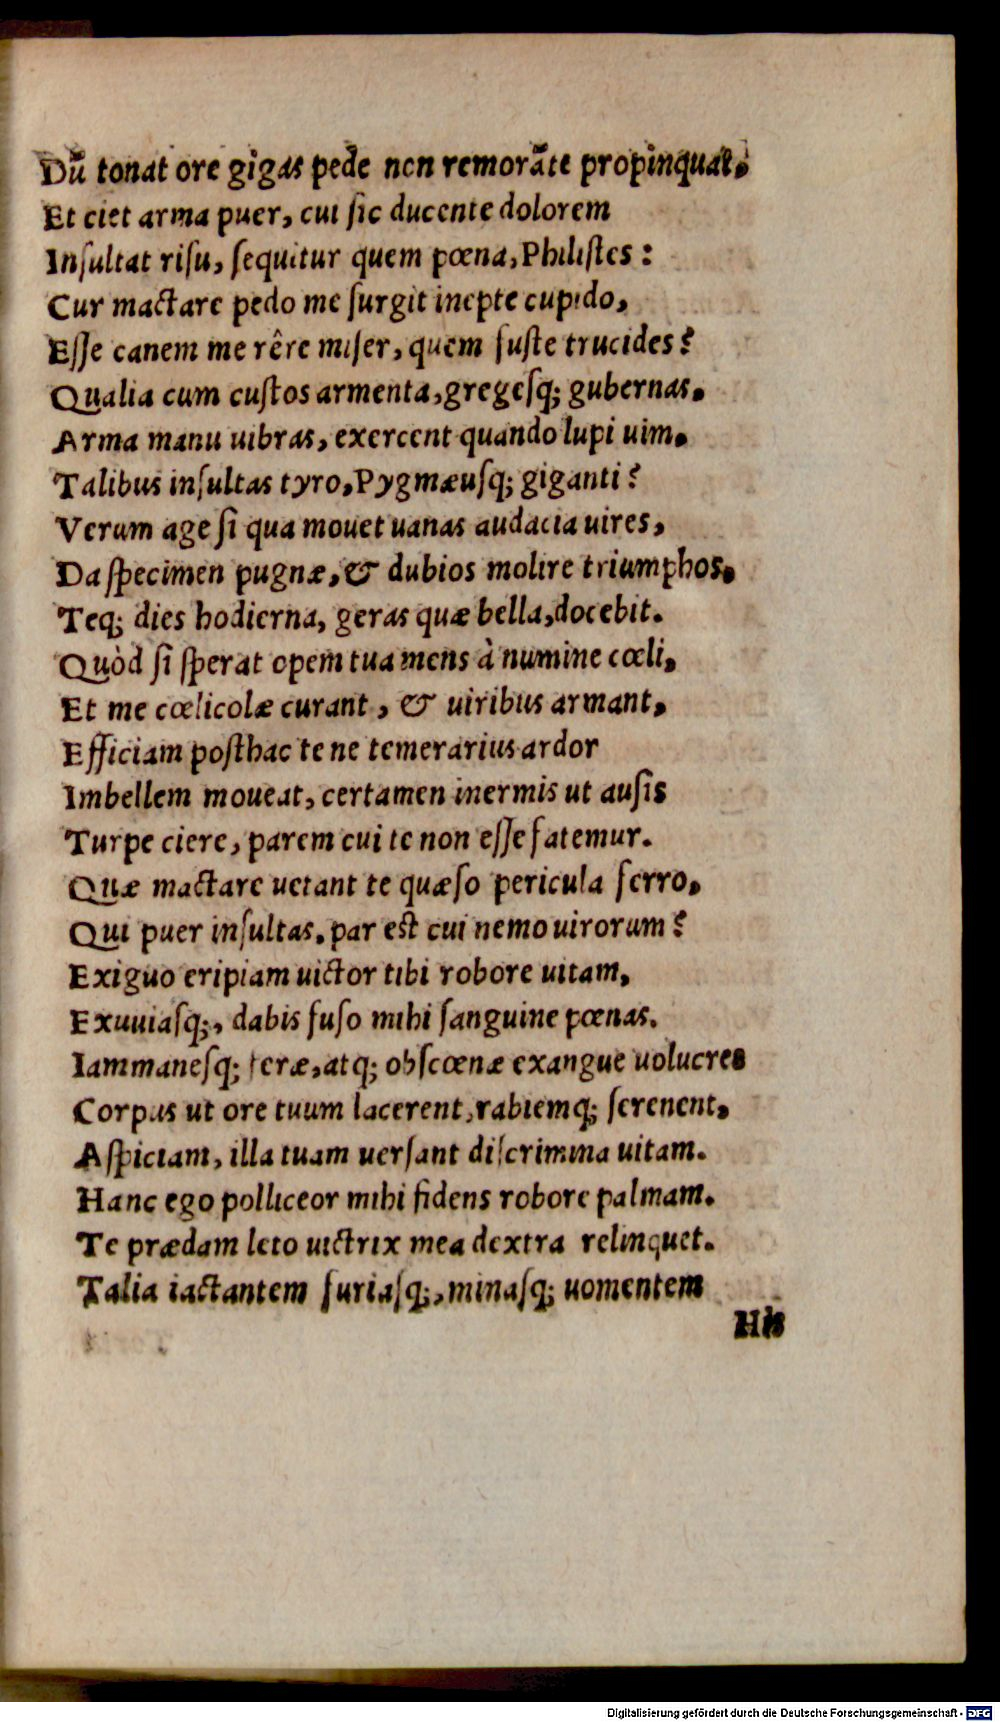 Dū tonat ore gigas pede non remorāte propinquat,
Et ciet arma puer, cui ſic ducente dolorem
Inſultat riſu, ſequitur quem pœna, Philiſtes:
Cur mactare pedo me ſurgit inepte cupido,
Eſſe canem me rêre miſer, quem fuſte trucides?
Qualia cum cuſtos armenta, gregeſq; gubernas,
Arma manu uibras, exercent quando lupi uim.
Talibus inſultas tyro, Pygmæuſq; giganti?
Verum age ſi qua mouet uanas audacia uires,
Da ſpecimen pugnæ, & dubios molire triumphos,
Teq; dies hodierna, geras quæ bella, docebit.
Quòd ſi ſperat opem tua mens à numine cœli,
Et me cœlicolæ curant, & uiribus armant,
Efficiam poſthac te ne temerarius ardor
Imbellem moueat, certamen inermis ut auſis
Turpe ciere, parem cui te non eſſe fatemur.
Quæ mactare uetant te quæſo pericula ferro,
Qui puer inſultas, par eſt cui nemo uirorum?
Exiguo eripiam uictor tibi robore uitam,
Exuuiaſq;, dabis fuſo mihi ſanguine pœnas.
Iammaneſq; feræ, atq; obſcœnæ exangue uolucres
Corpus ut ore tuum lacerent, rabiemq; ſerenent,
Aſpiciam, illa tuam uerſant diſcrimina uitam.
Hanc ego polliceor mihi fidens robore palmam.
Te prædam leto uictrix mea dextra relinquet.
Talia iactantem furiaſq;, minaſq; uomentem
His
Digitalisierung gefördert durch die Deutsche Forschungsgemeinschaft - DFG